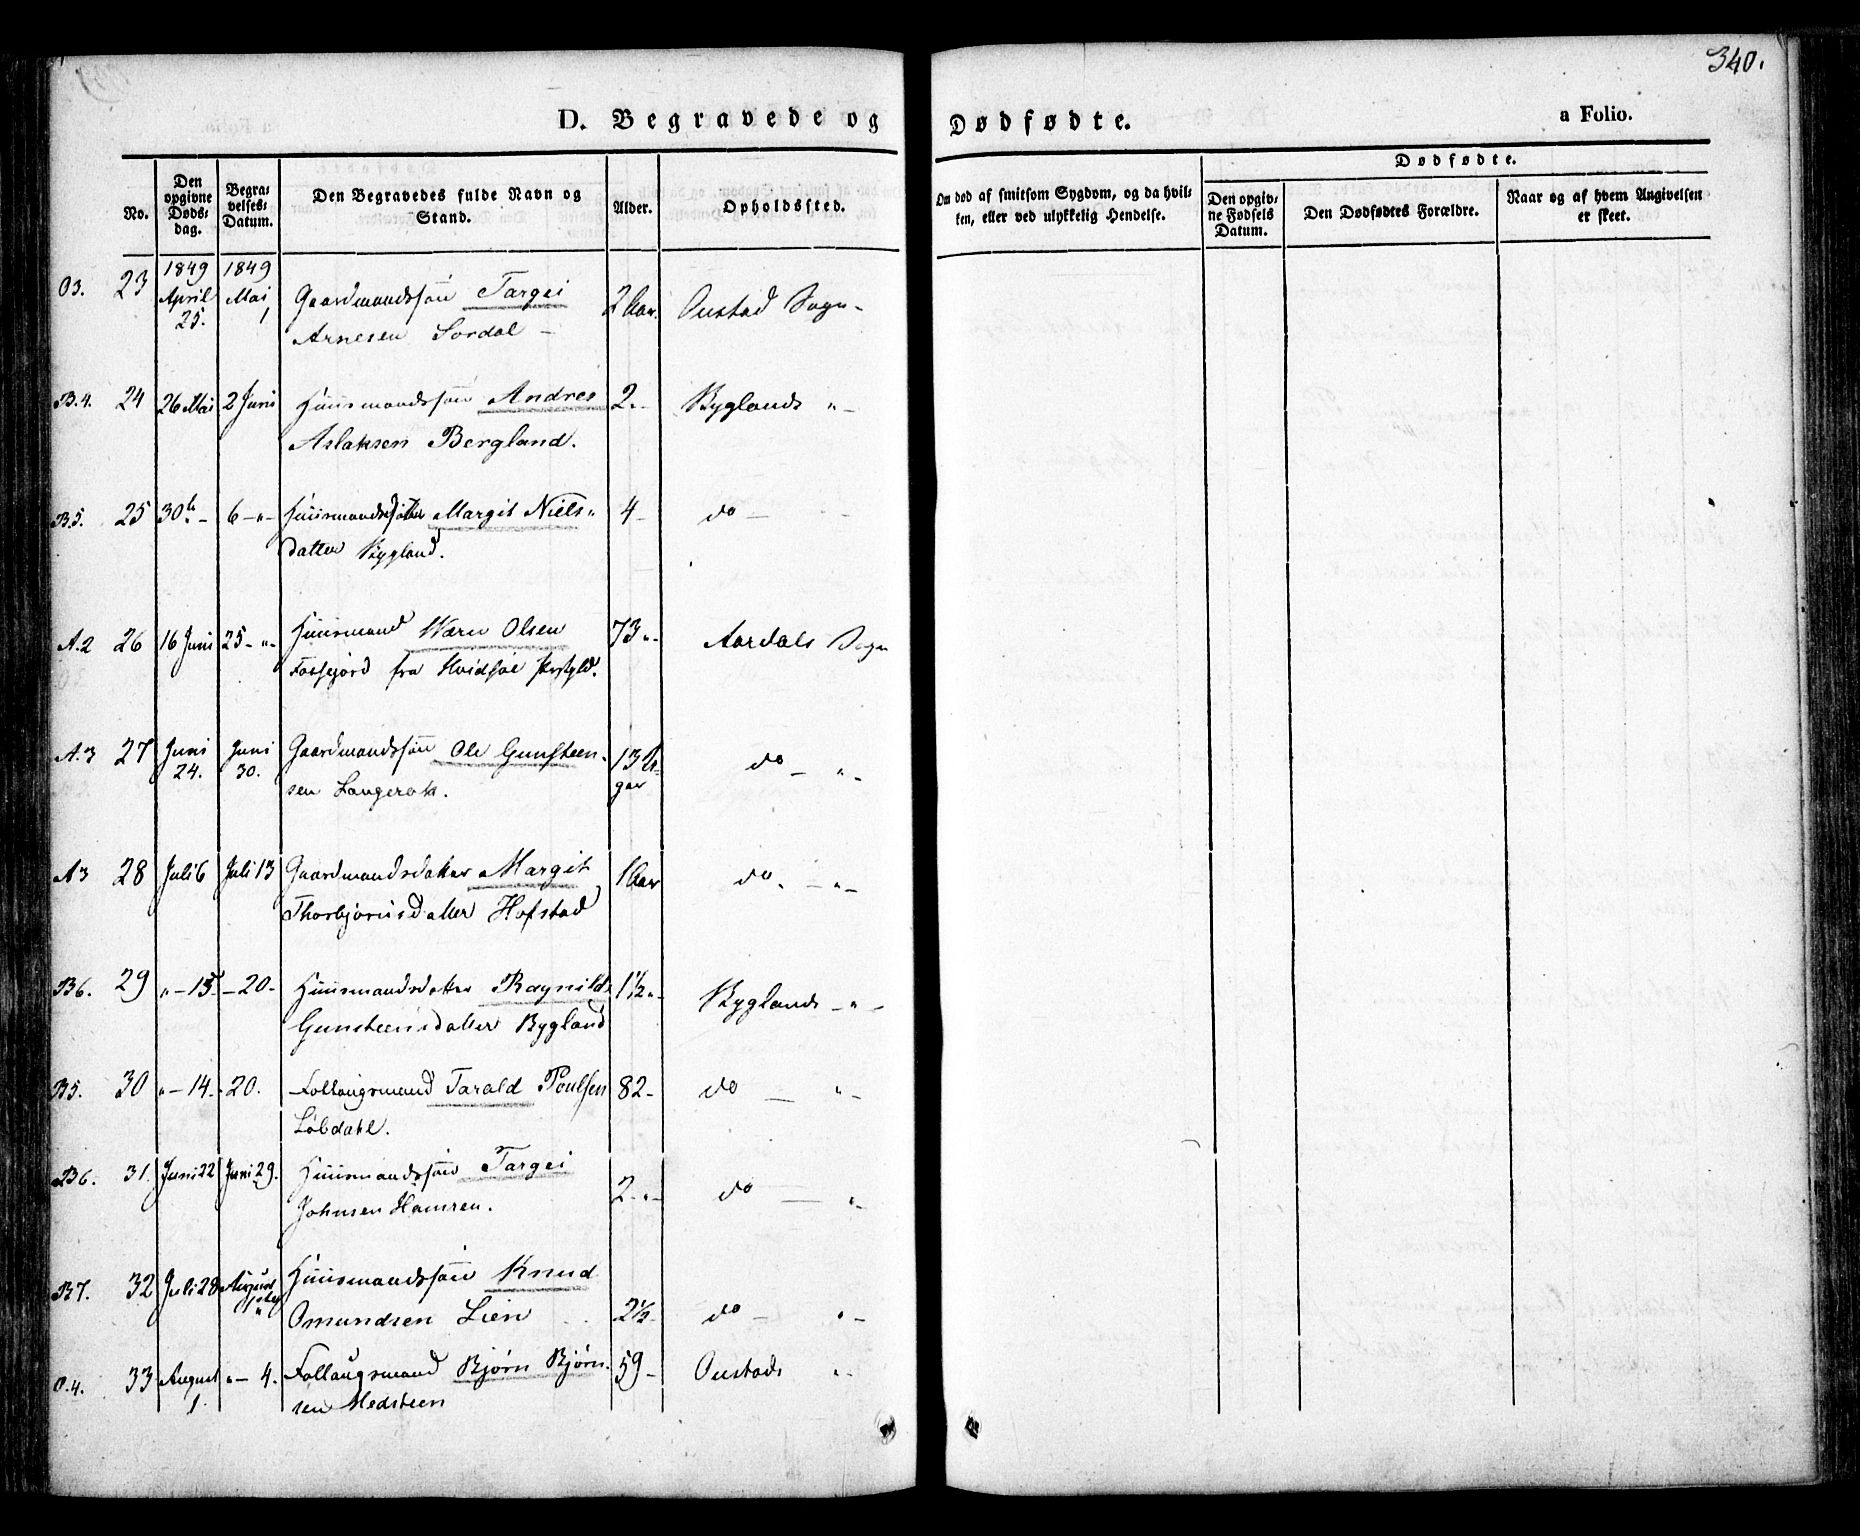 340.
D. Begravede og Dødfødte.
a Folio.
No.
Den opgivne Døds-dag.
Begra-velses-Datum.
Den Begravedes fulde Navn og Stand.
Alder.
Opholdssted.
Om død af smitsom Sygdom, og da hvil-ken, eller ved ulykkelig Hendelse.
Dødfødte.
Den opgiv-ne Fødsels Datum.
Den Dødfødtes Forældre.
Naar og af hvem Angivelsen er skeet.
O3. 23 1849 April 25. 1849 Mai 1 Gaardmandssön Targei 2 Aar. Oustad Sogn -
Arnesen Sordal -
B.4. 24 26 Mai 2 Juni Huusmandssön Andres 2. - Byglands " -
Aslaksen Bergland.
B5. 25 30te - 6 - " - Huusmandsdatter Margit Niels" 4 - do -
datter Bygland.
A.2 26 16 Juni 25 - " - Huusmand Olsen 73 " - Aardals Sogn
fra Hvidsøe
A.3 27 Juni 24. Juni 30. Gaardmandssön Ole Gunsteen- 13 do - " -
sen Langerak.
A3 28 Juli 6 Juli 13 Gaardmandsdatter Margit 1 Aar do. - " -
Thorbjörnsdatter Hofstad
B6. 29 " - 15 - - 20 - Huusmandsdatter Ragnild 1½ " - Byglands - " -
Gunsteensdatter Bygland
B5. 30 " - 14 - - 20. Follaugsmand Tarald Poulsen 82 - do - " -
Löbdahl.
B6. 31. Juni 22 Juni 29. Huusmandssön Targei 2. " - do - " -
Johnsen Hamren.
B7. 32 Juli 28 August Huusmandssön Knud
Omundsen Lien 2½ - do - " -
O.4. 33 August 1. " - 4. Follaugsmand Bjørn Bjørn- 59 - Oustads " -
sen Medsteen